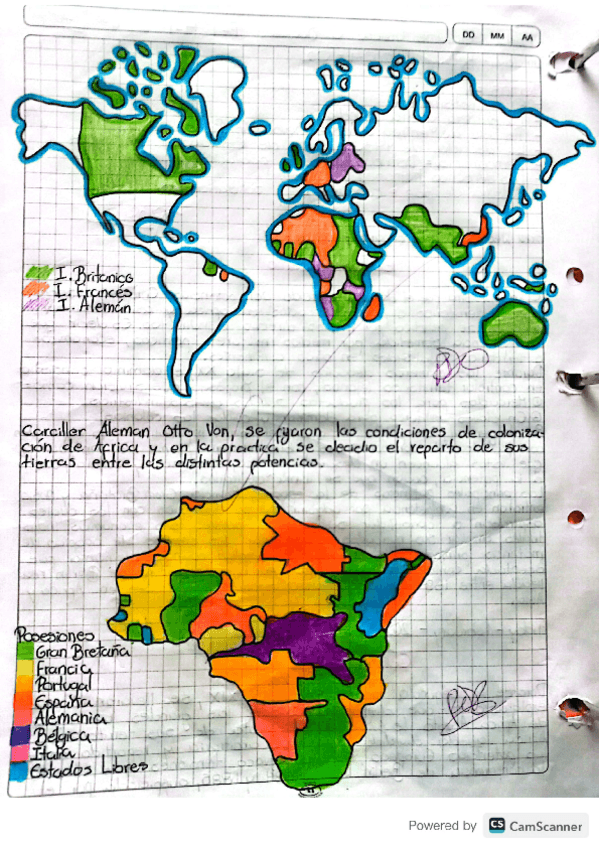 DD MM AA
I. Britanico
I. Francés
I. Alemán
Carciller Aleman Otto Von, se fijaron las condiciones de coloniza-
ción de África y en la practica se decidio el reparto de sus
tierras entre las distintas potencias.
Posesiones
Gran Bretaña
Francia
Portugal
España
Alemania
Bélgica
Italia
Estados Libres
Powered by CS CamScanner